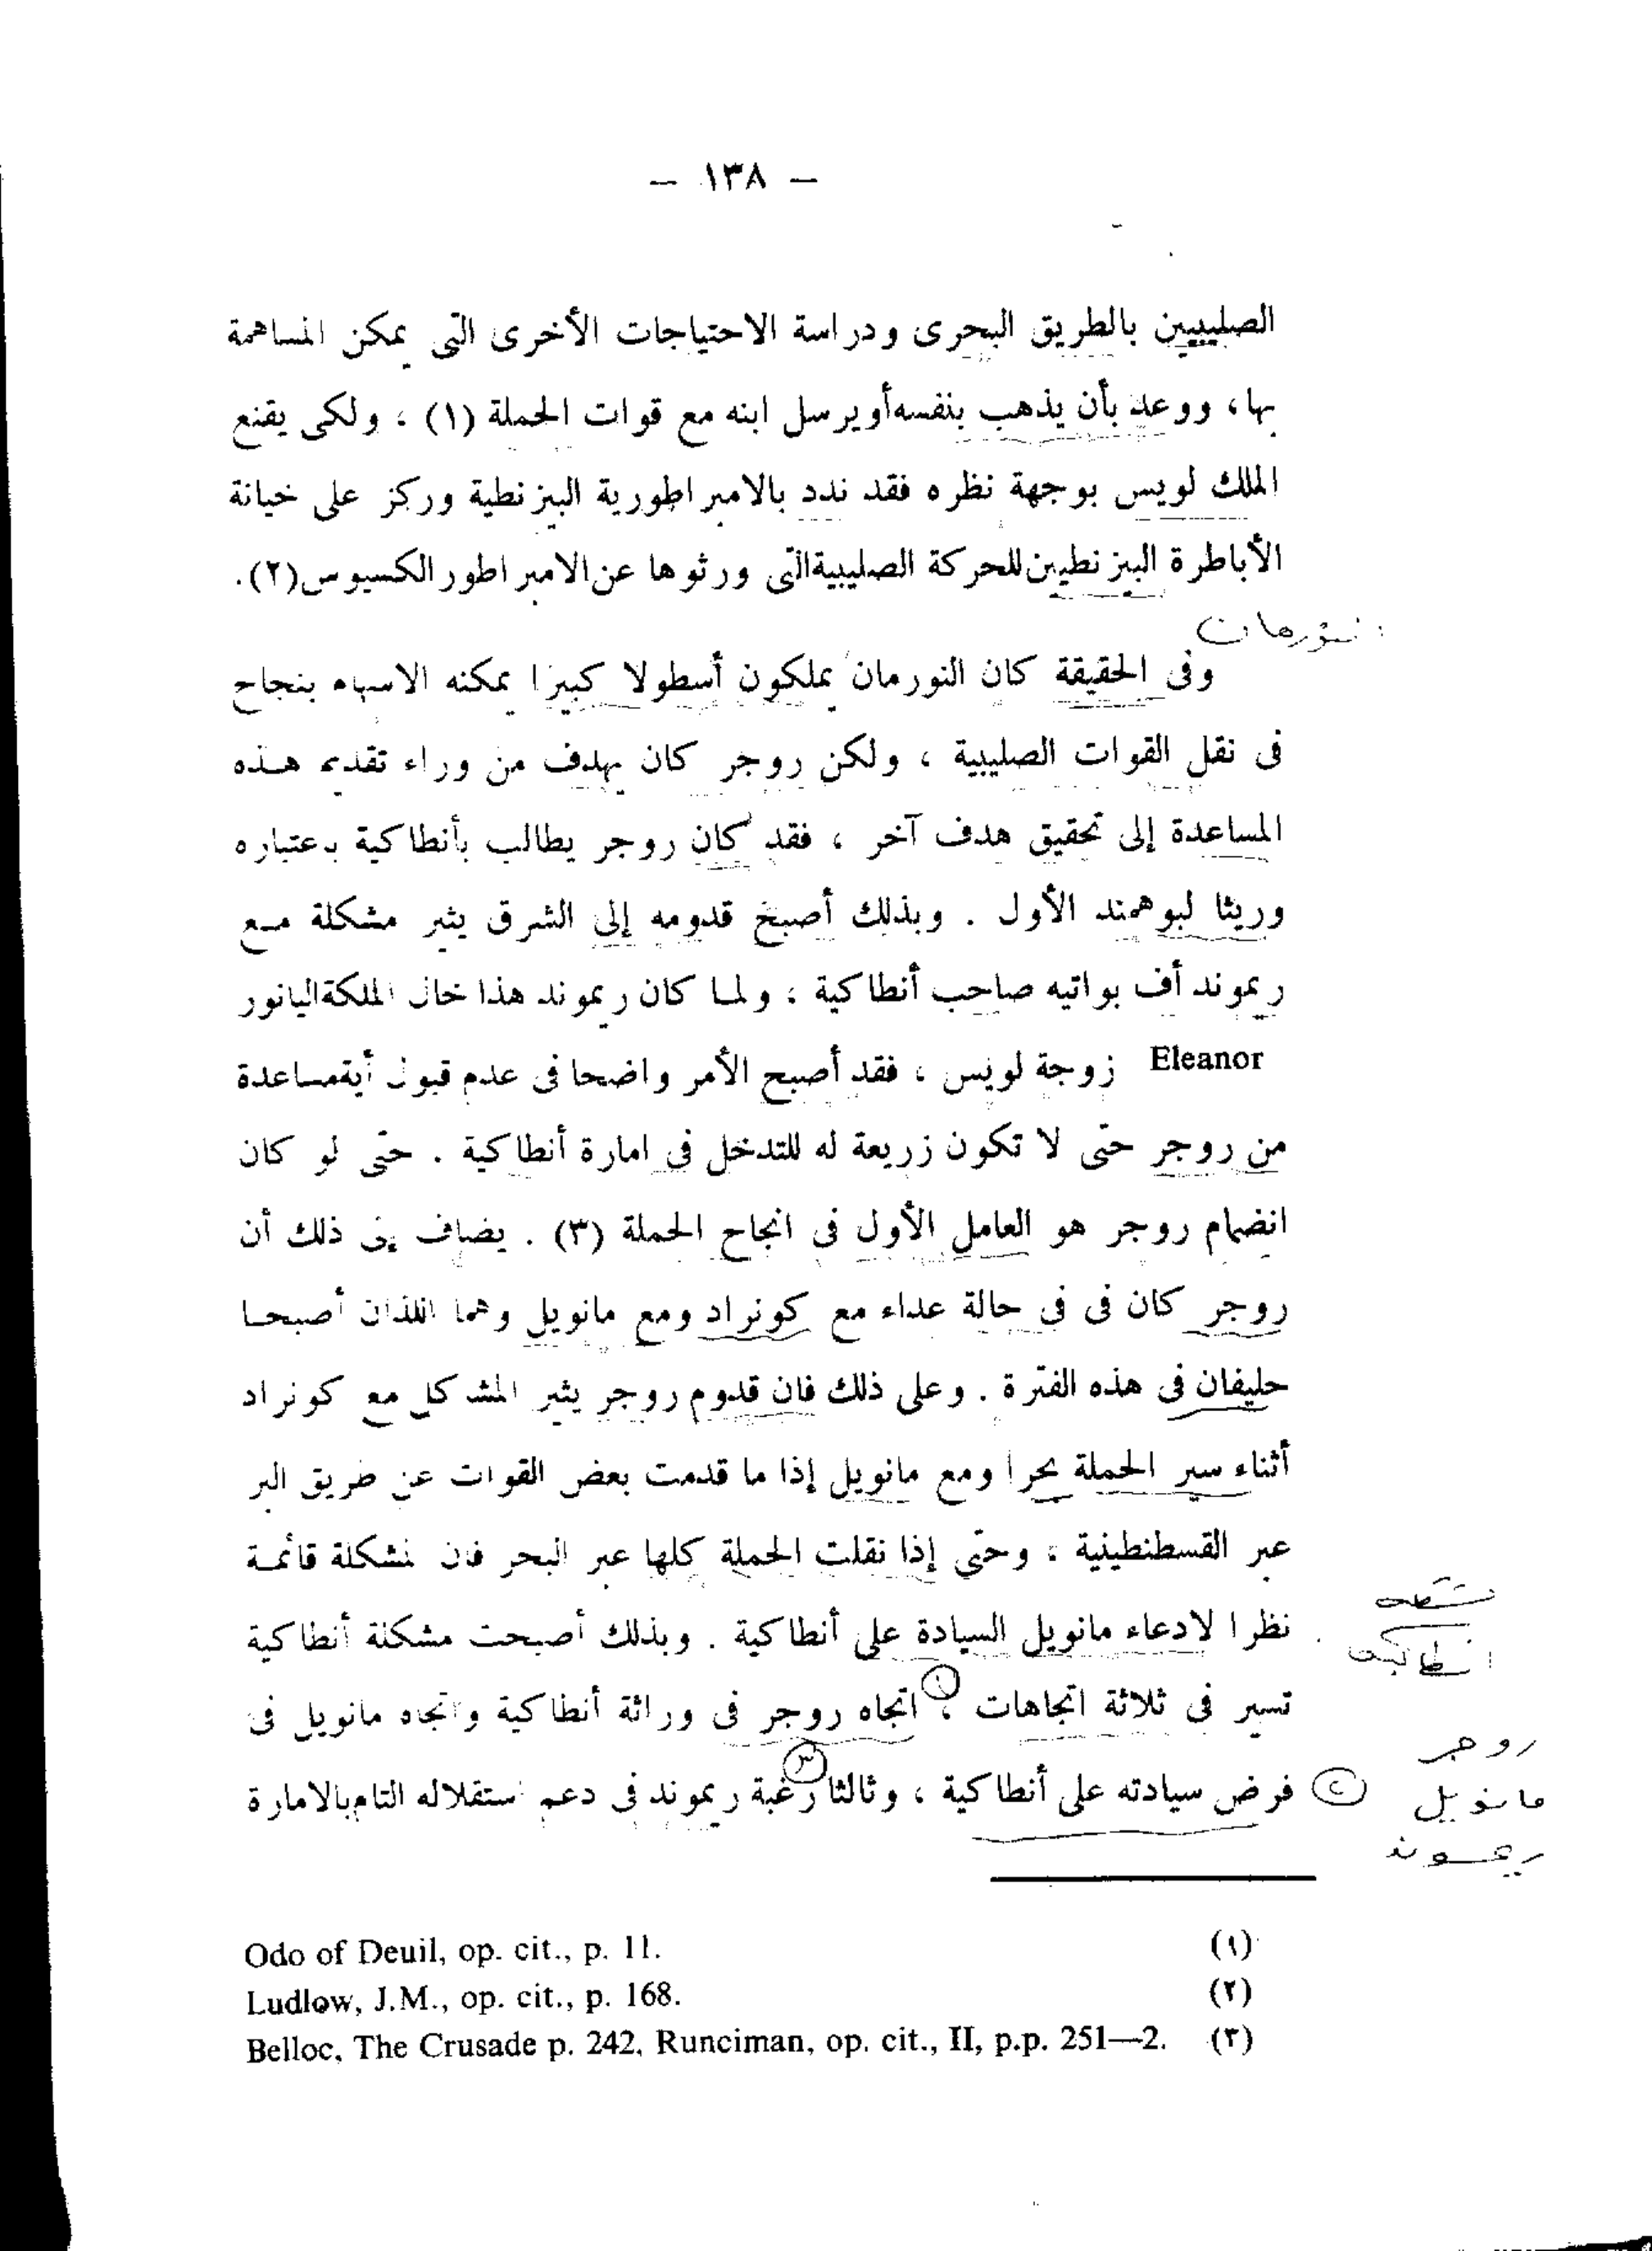 — ١٣٨ —
الصليبيين بالطريق البحرى ودراسة الاحتياجات الأخرى التى يمكن المساهمة
بها، ووعد بأن يذهب بنفسه أو يرسل ابنه مع قوات الحملة (١) ، ولكى يقنع
الملك لويس بوجهة نظره فقد ندد بالامبراطورية البيزنطية وركز على خيانة
الأباطرة البيزنطيين للحركة الصليبية التى ورثوها عن الامبراطور الكسيوس(٢).
النورمان
وفى الحقيقة كان النورمان يملكون أسطولا كبيرا يمكنه الاسهام بنجاح
فى نقل القوات الصليبية ، ولكن روجر كان يهدف من وراء تقديم هذه
المساعدة إلى تحقيق هدف آخر ، فقد كان روجر يطالب بأنطاكية باعتباره
وريثا لبوهمند الأول . وبذلك أصبح قدومه إلى الشرق يثير مشكلة مع
ريموند أف بواتيه صاحب أنطاكية ، ولما كان ريموند هذا خال الملكة اليانور
Eleanor زوجة لويس ، فقد أصبح الأمر واضحا فى عدم قبول أية مساعدة
من روجر حتى لا تكون زريعة له للتدخل فى امارة أنطاكية . حتى لو كان
انضمام روجر هو العامل الأول فى انجاح الحملة (٣) . يضاف إلى ذلك أن
روجر كان فى فى حالة عداء مع كونراد ومع مانويل وهما اللذان أصبحا
حليفان فى هذه الفترة . وعلى ذلك فان قدوم روجر يثير المشاكل مع كونراد
أثناء سير الحملة بحرا ومع مانويل إذا ما قدمت بعض القوات عن طريق البر
عبر القسطنطينية ، وحتى إذا نقلت الحملة كلها عبر البحر فان المشكلة قائمة
نظرا لادعاء مانويل السيادة على أنطاكية . وبذلك أصبحت مشكلة أنطاكية
انطاكية
تسير فى ثلاثة اتجاهات ، ١ اتجاه روجر فى وراثة أنطاكية واتجاه مانويل فى
روجر
فرض سيادته على أنطاكية ، وثالثا ٣ رغبة ريموند فى دعم استقلاله التام بالامارة
٢ مانويل
ريموند
(١) Odo of Deuil, op. cit., p. 11.
(٢) Ludlow, J.M., op. cit., p. 168.
(٣) Belloc, The Crusade p. 242, Runciman, op. cit., II, p.p. 251—2.